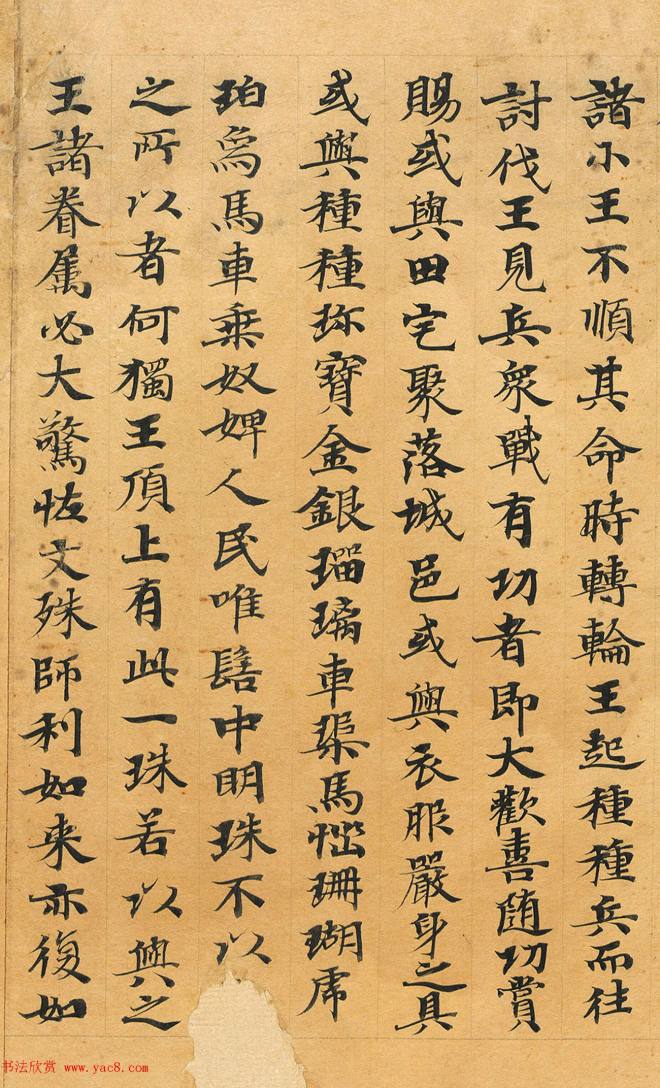 諸小王不順其命時轉輪王起種種兵而往
討伐王見兵衆戰有功者即大歡喜随功賞
賜或與田宅聚落城邑或與衣服嚴身之具
或與種種珎寶金銀瑠璃車渠馬惱珊瑚虎
珀象馬車乗奴婢人民唯髻中明珠不以
之所以者何獨王頂上有此一珠若以與之
王諸眷属必大驚恠文殊師利如来亦復如
书法欣赏 www.yac8.com